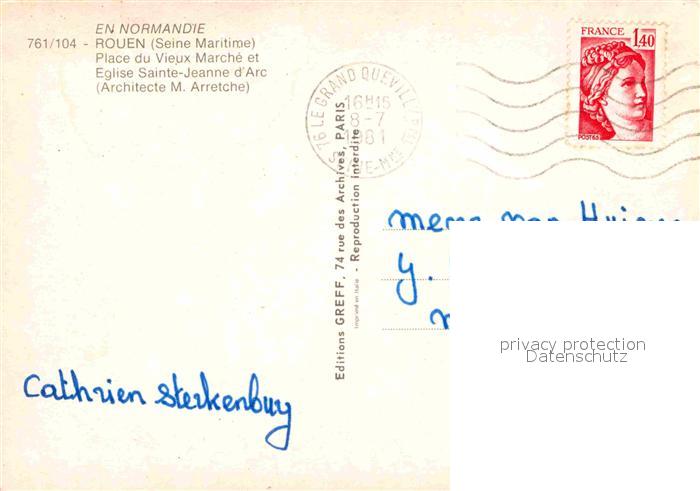 EN NORMANDIE
761/104 - ROUEN (Seine Maritime)
Place du Vieux Marché et
Eglise Sainte-Jeanne d'Arc
(Architecte M. Arretche)
FRANCE
1,40
POSTES
76 LE GRAND QUEVILLY
16H15
8-7
1981
SNE-MME
Editions GREFF, 74 rue des Archives, PARIS
Imprimé en Italie - Reproduction interdite
y.
privacy protection
Datenschutz
Cathrien Sterkenburg